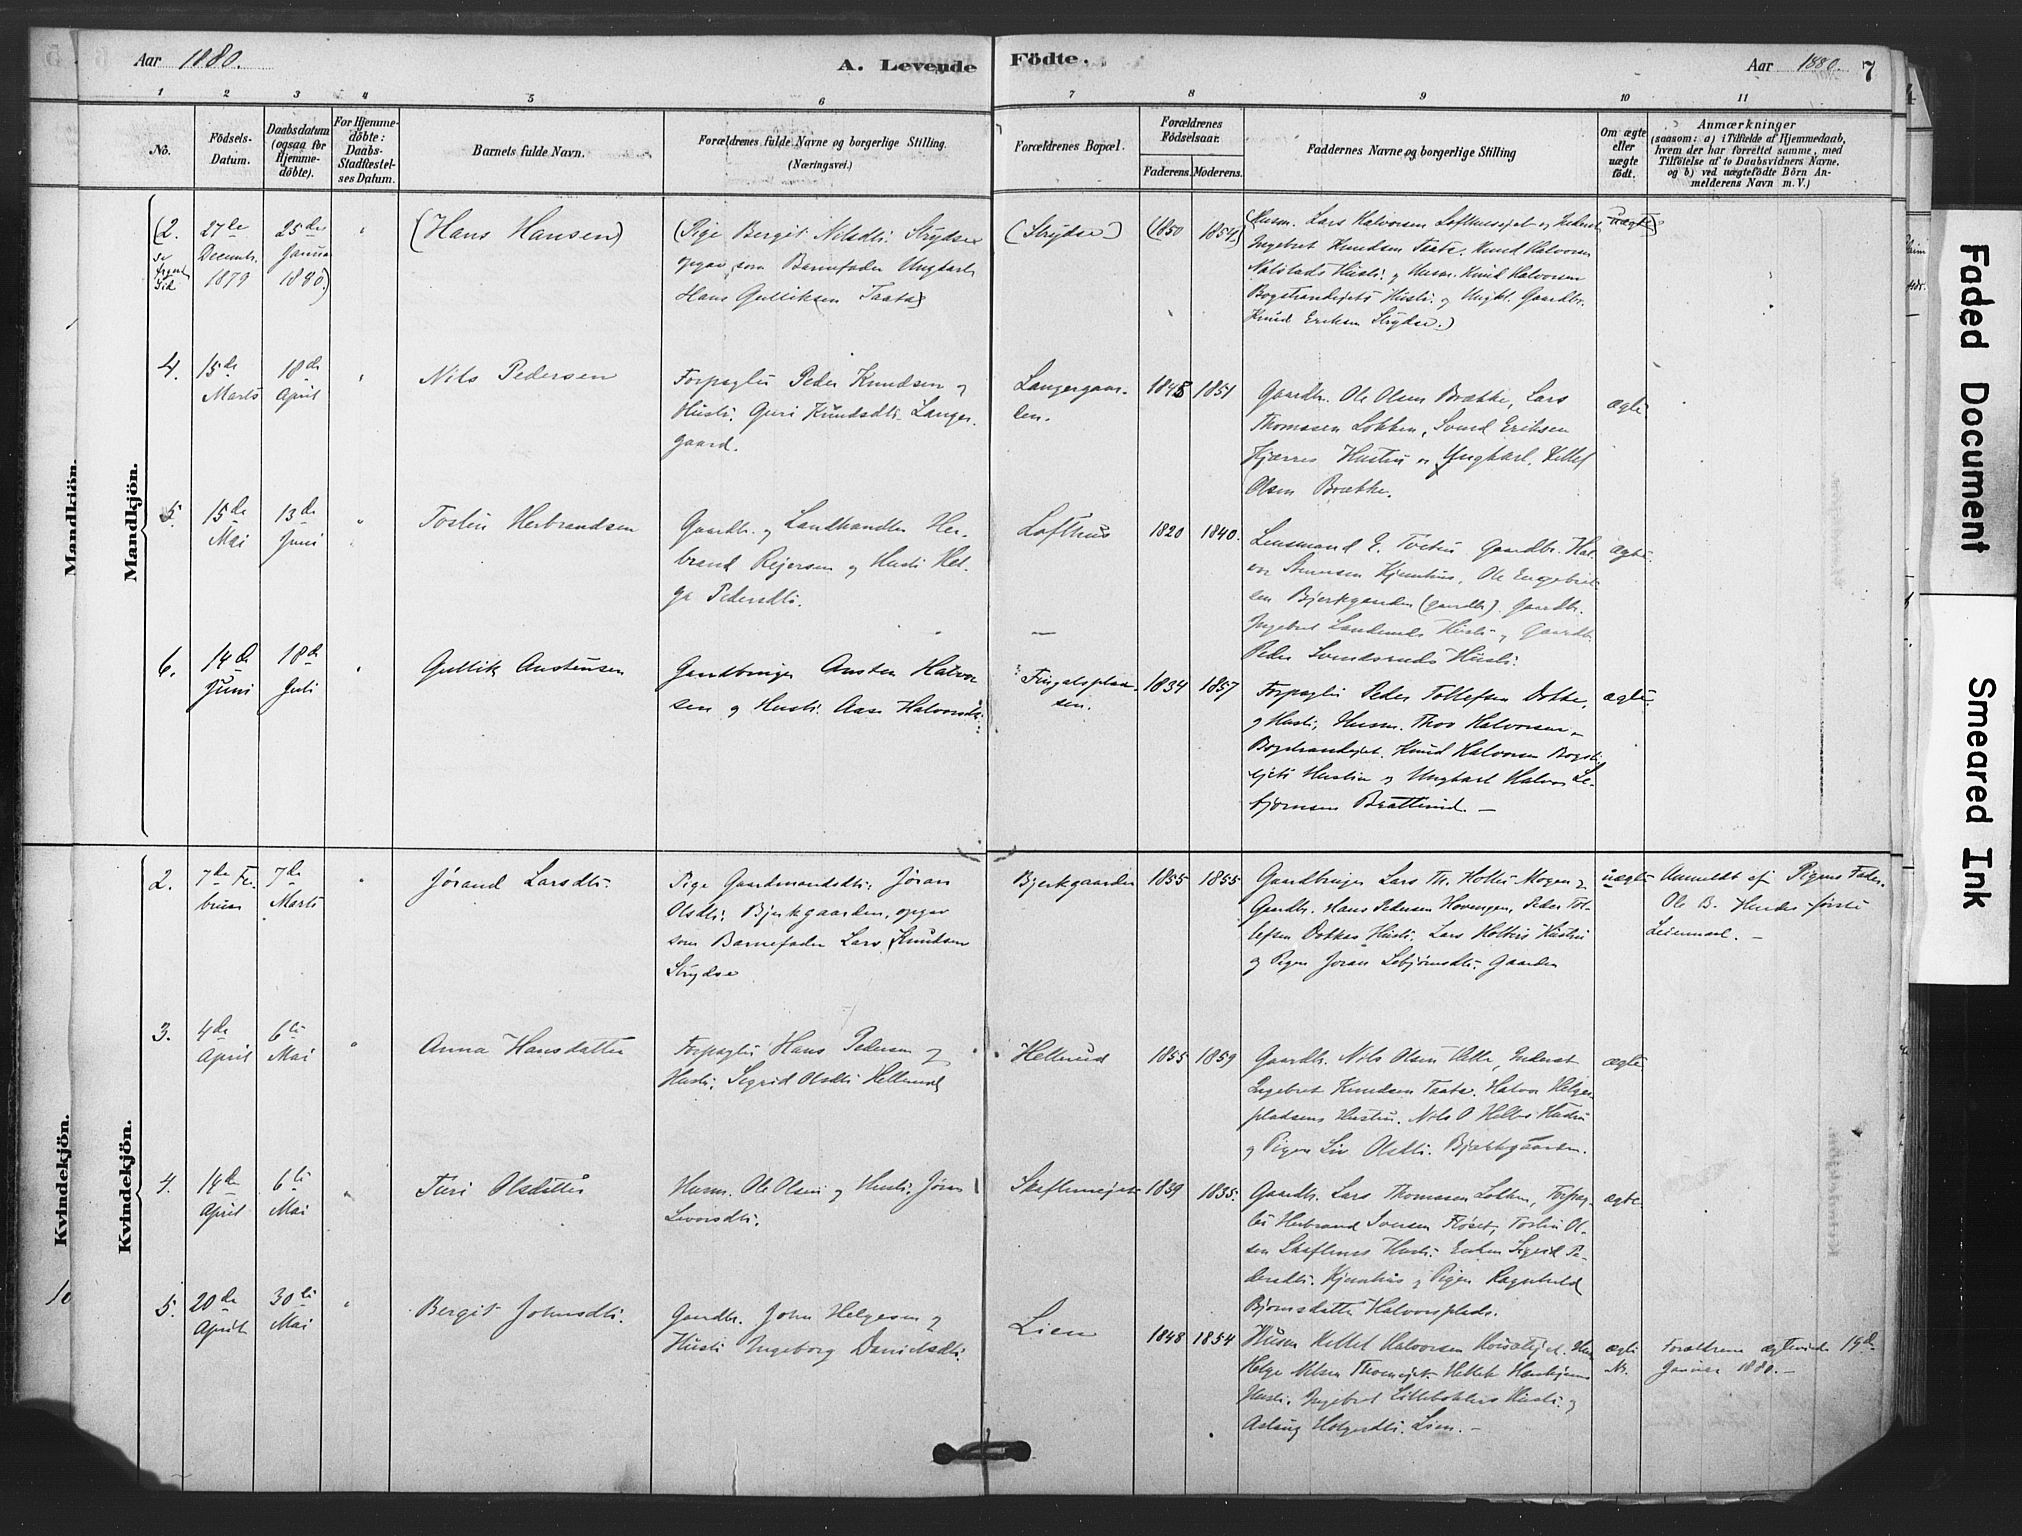 Aar 1880.
A. Levende Födte.
Aar 1880. 7
1 2 3 4 5 6 7 8 9 10 11
No.
Födsels-
Datum.
Daabsdatum
(ogsaa for
Hjemme-
döbte).
For Hjemme-
döbte:
Daabs-
Stadfæstel-
ses Datum.
Barnets fulde Navn.
Forældrenes fulde Navne og borgerlige Stilling.
(Næringsvei.)
Forældrenes Bopæl.
Forældrenes
Födselsaar.
Faderens. Moderens.
Faddernes Navne og borgerlige Stilling
Om ægte
eller
uægte
födt.
Anmærkninger
(saasom: a) i Tilfælde af Hjemmedaab,
hvem der har forrettet samme, med
Tilföielse af to Daabsvidners Navne,
og b) ved uægtefödte Börn An-
melderens Navn m. V.)
Mandkjön.
Mandkjön.
(2.
27de
Decembr.
1879
25de
Januar
1880)
(Hans Hansen)
(Pige Bergit Nilsdtr. Strydse
opgav som Barnefader Ungkarl
Hans Gulliksen Taata)
(Strydse)
(1850 1854)
(Husm. Lars Halvorsen Lofthusejet og Inderst
Ingebret Knudsen Taata. Knud Halvorsen
Hustr. og Husm. Knud Halvorsen
Bogstrandejets Hustr. og Ungk. Gaardbr.
Knud Eriksen Strydse.)
uægte)
4.
15de
Marts
18de
April
Nils Pedersen
Forpagter Peder Knudsen og
Hustr. Guri Knudsdtr. Langer-
gaard.
Langergaar-
den.
1848 1851
Gaardbr. Ole Olsen Brække, Lars
Thomasen Lokken, Svend Eriksen
Hustru og Ungkarl. Kittel
Olsen Brække.
ægte
5.
15de
Mai
13de
Juni
Tosten Herbrandsen
Gaardbr. og Landhandler Her-
brand Reiersen og Hustr. Hel-
ga Pedersdtr.
Lofthus
1820 1840.
Lensmand E. Gaardbr. Hal-
vor Kjemhus, Ole Engebret-
sen Bjerkgaarden (gaardbr). Gaardbr.
Ingebret Hustr. og Gaardb.
Peder Svendsruds Hustr.
ægte.
6.
14de
Juni
18de
Juli
Gullik Austensen
Gaardbruger Austen Halvor-
sen og Hustr. Aase Halvorsdtr.
Fingalsplad-
sen.
1834 1857
Forpagter Peder Tollefsen Dokke,
og Hustr., Husm. Thor Halvorsen
Bogstrandejet. Knud Halvorsen Bogstr.
ejets Hustru og Ungkarl Halvor Le-
bjørnsen Bratterud. —
ægte.
Kvindekjön.
Kvindekjön.
2.
7de Fe-
bruar
7de
Marts
Jørand Larsdtr.
Pige Gaardmandsdtr. Jøran
Olsdtr. Bjerkgaarden, opgav
som Barnefader Lars Knudsen
Strydse
Bjerkgaarden
1855 1855
Gaardbruger Lars Th. Holtes Mogen og
Gaardbr. Hans Pedersen Hovengen, Peder Tol-
lefsen Dokkas Hustr. Lars Holtes Hustru
og Pigen Jøran Lebjørnsdtr. Gaarden
uægte
Anmeldt af Pigens Fader
Ole B. Hendes første
Leiermaal. —
3.
4de
April
6te
Mai
Anna Hansdatter
Forpagter Hans Pedersen og
Hustr. Sigrid Olsdtr. Hellerud
Hellerud
1855 1859
Gaardb. Nils Olsen Inderst
Ingebret Knudsen Taata. Halvor Helgen-
pladsens Hustru. Nils O Hustru
og Pigen Liv Olsdtr. Bjerkegaarden.
ægte
4.
14de
April
6te
Mai
Turi Olsdatter
Husm. Ole Olsen og Hustr. Jøran
Levorsdtr.
Skaftenuejet
1839 1855.
Gaardb. Lars Thomasen Lokken, Forpag-
ter Herbrand Iversen Frøset, Tosten Ol-
sen Hustr. Enken Sigrid Pe-
dersdtr. Kjemhus og Pigen Ragnhild
Bjørnsdatter Halvorsplads.
ægte.
10
5.
20de
April
30te
Mai
Bergit Johnsdtr.
Gaardbr. John Helgesen og
Hustr. Ingeborg Danielsdtr.
Lien
1848 1854
Husm Kittel Halvorsen
Helge Nilsen
Hustr. Ingebret Hustr. og
Aslaug Helgesdtr. Lien. —
ægte
Forældrene ægteviede 19de
Januar 1880. —
Faded Document
Smeared Ink